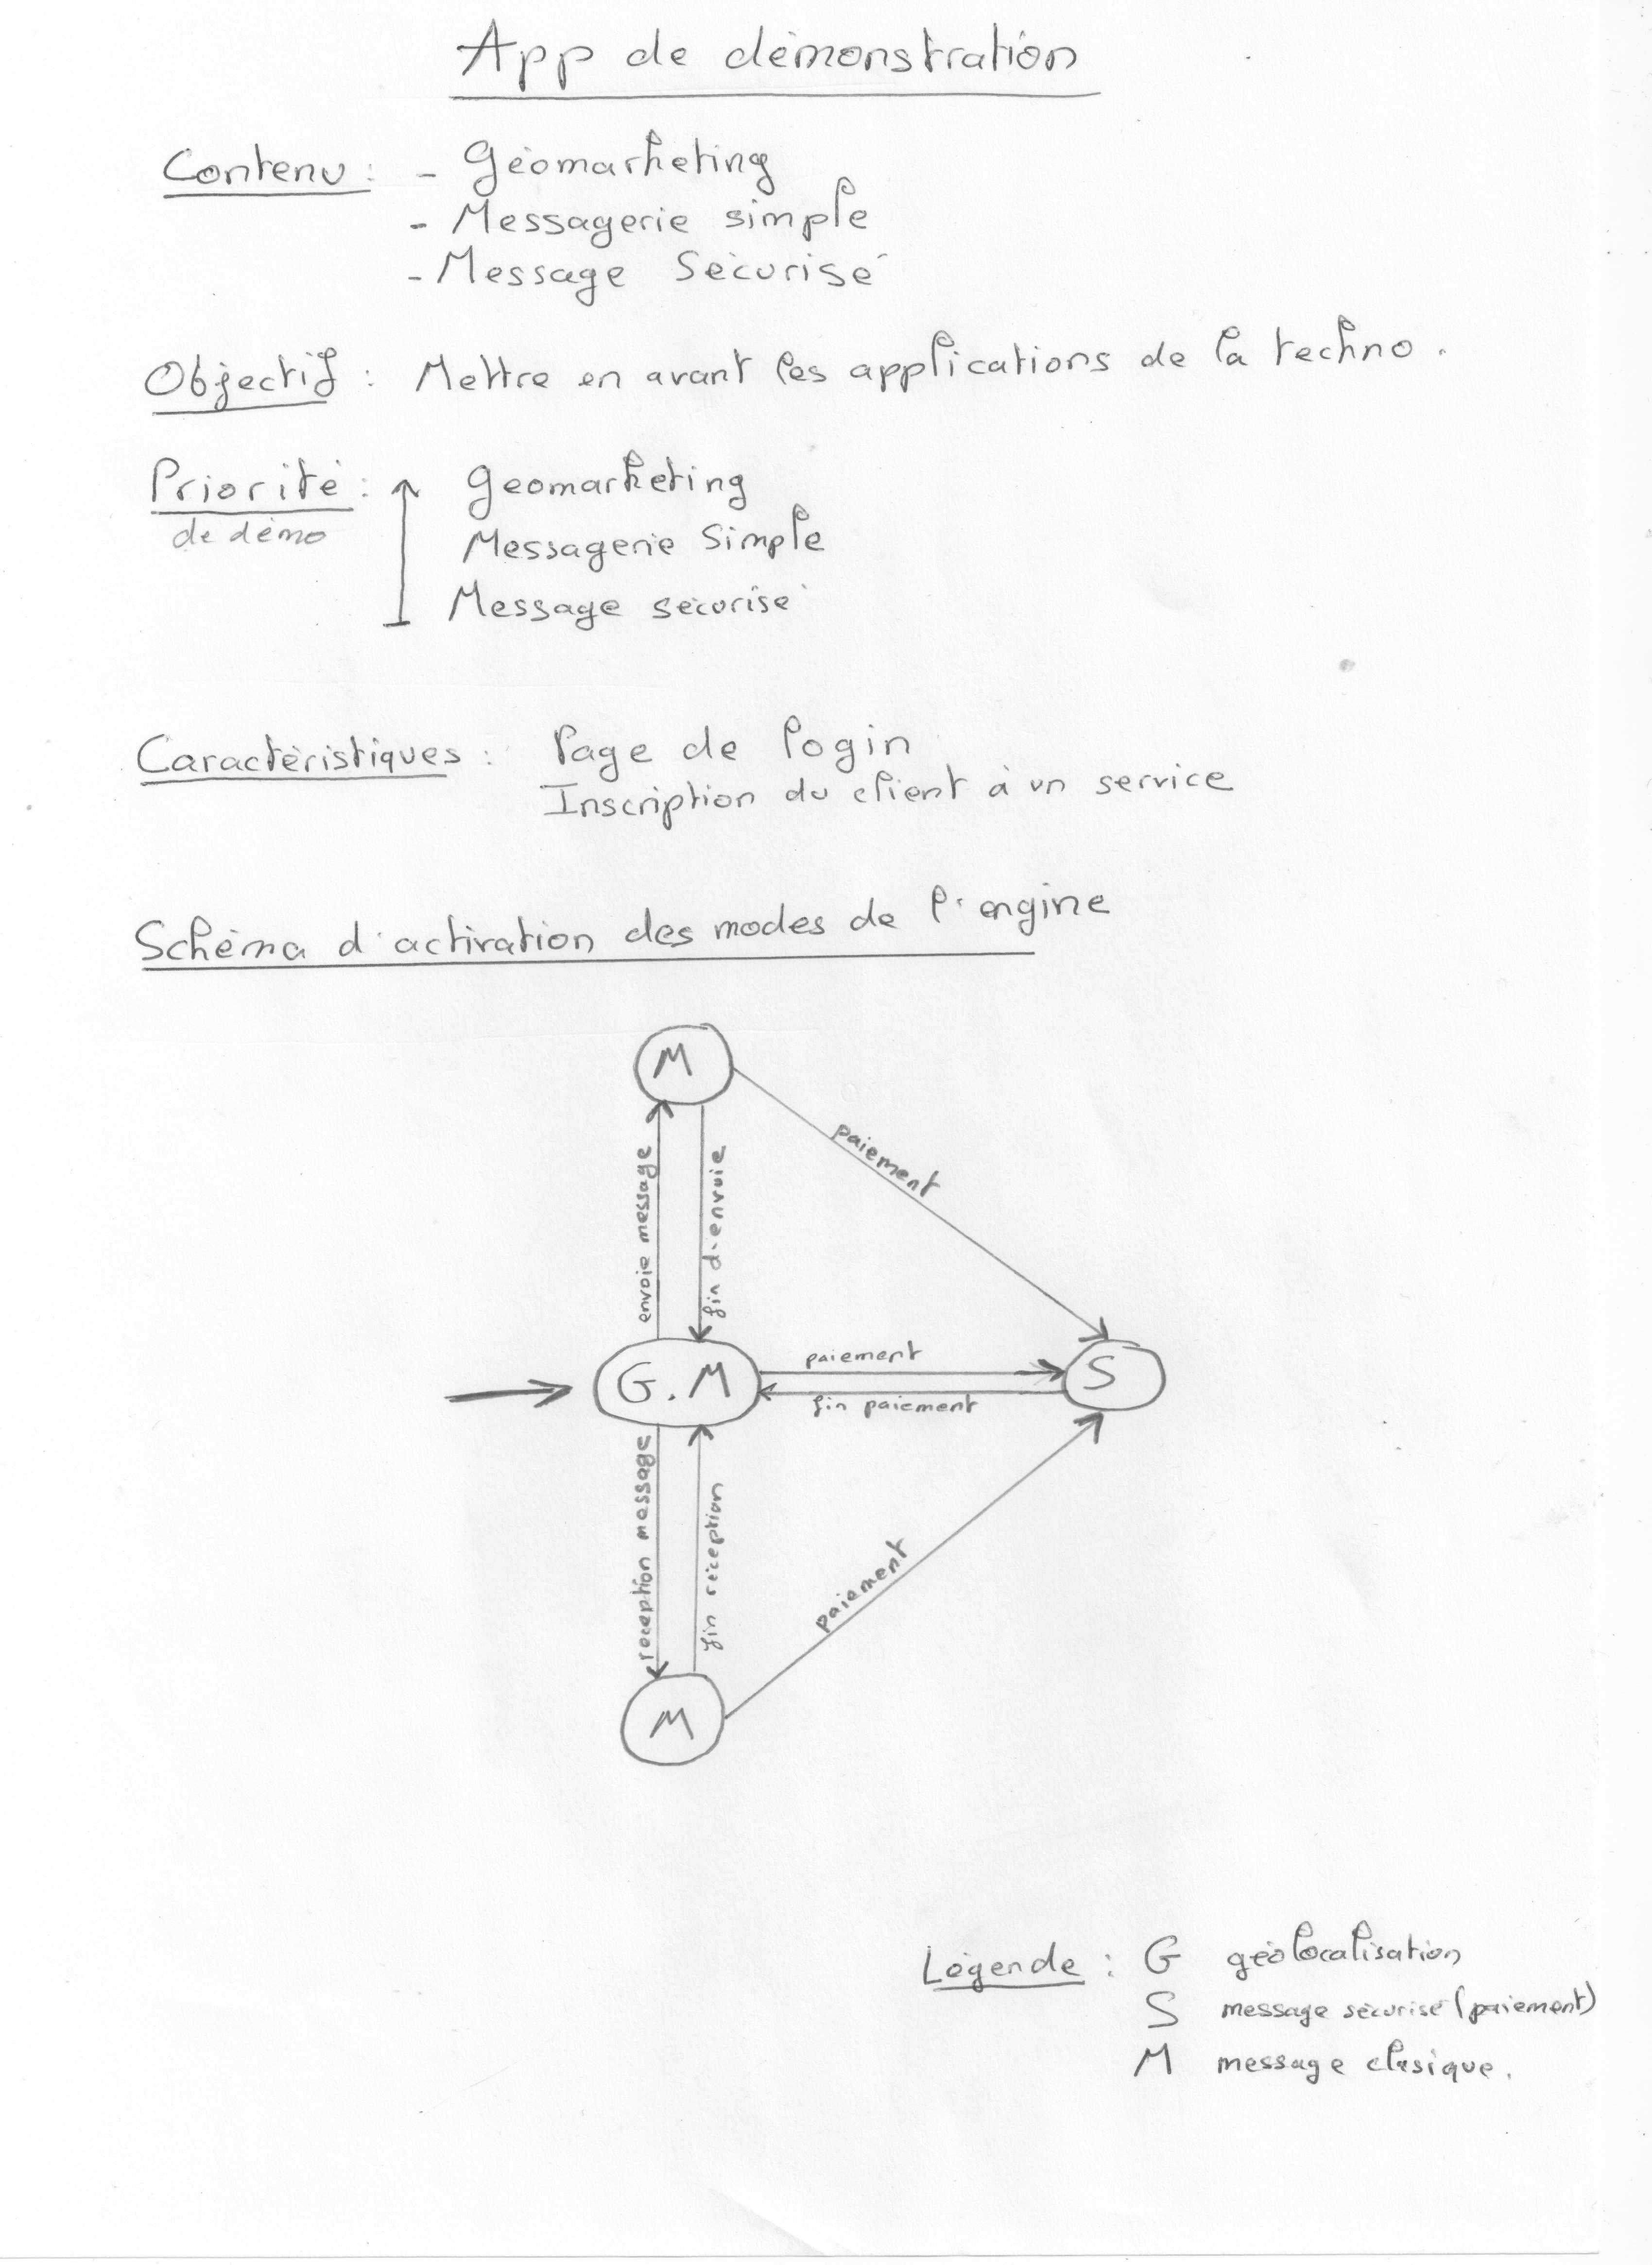 App de démonstration
Contenu : - Géomarketing
- Messagerie simple
- Message Sécurisé
Objectif : Mettre en avant les applications de la techno.
Priorité : Geomarketing
de démo
Messagerie Simple
Message sécurisé
Caractéristiques : Page de login
Inscription du client à un service
Schéma d'activation des modes de l'engine
M
paiement
envoie message
fin d'envoie
G.M
paiement
fin paiement
S
reception message
fin réception
paiement
M
Légende : G géolocalisation
S message sécurisé (paiement)
M message clasique.